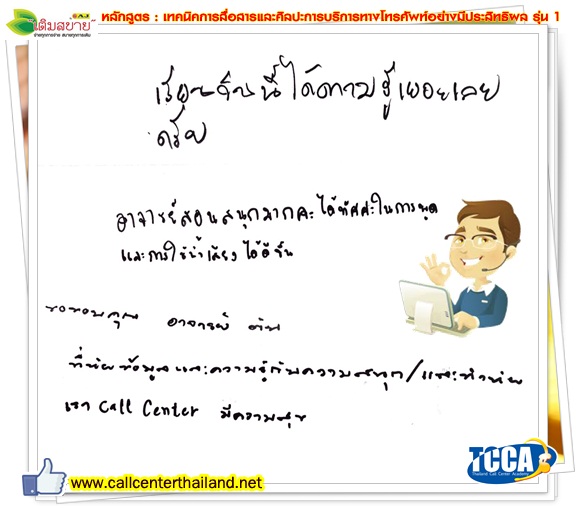 เติมสบาย
หลักสูตร : เทคนิคการสื่อสารและศิลปะการบริการทางโทรศัพท์อย่างมีประสิทธิผล รุ่น 1
เรียนวันนี้ได้ความรู้เยอะเลย
ครับ
อาจารย์สอนสนุกมากค่ะ ได้ทักษะในการพูด
และการใช้น้ำเสียงได้ดีขึ้น
ขอขอบคุณ อาจารย์
ที่ให้ข้อมูลและความรู้กับความสนุก/และทำให้
เรา Call Center มีความสุข
TCCA
Thailand Call Center Academy
www.callcenterthailand.net